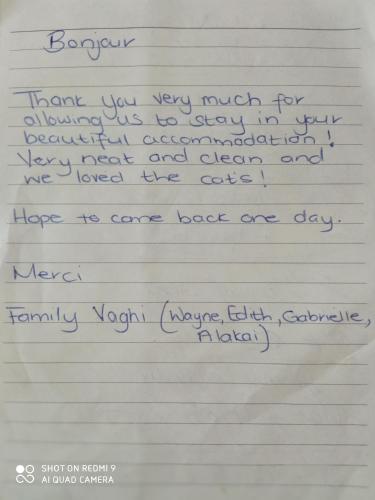 Bonjour
Thank you very much for
allowing us to stay in your
beautiful accommodation!
Very neat and clean and
we loved the cats!
Hope to come back one day.
Merci
Family Vaghi (Wayne, Edith, Gabrielle,
Alakai)
SHOT ON REDMI 9
AI QUAD CAMERA